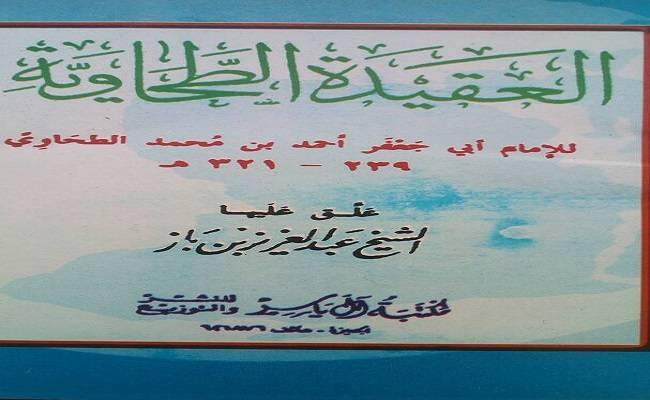 العقيدة الطحاوية
للإمام أبي جعفر أحمد بن محمد الطحاوي
٢٣٩ - ٣٢١ هـ
علق عليها
الشيخ عبد العزيز بن باز
مكتبة أولي للنشر والتوزيع